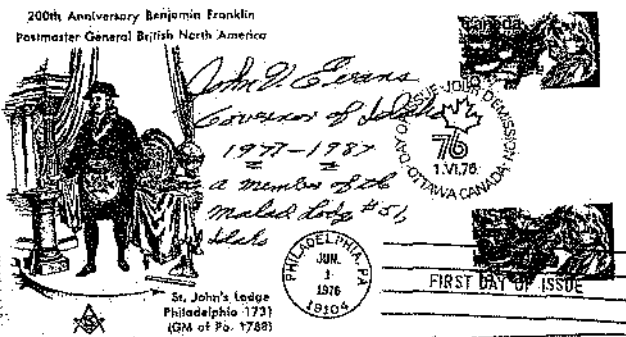 200th Anniversary Benjamin Franklin
Postmaster General British North America
Canada
John V. Evans
Governor of Idaho
1977-1987
a member of the
Malad Lodge #51,
Idaho
DAY OF ISSUE JOUR D'ÉMISSION
76
1.VI.76
OTTAWA CANADA
PHILADELPHIA, PA
JUN.
1
1976
19104
FIRST DAY OF ISSUE
St. John's Lodge
Philadelphia 1731
(GM of Pa. 1788)
G